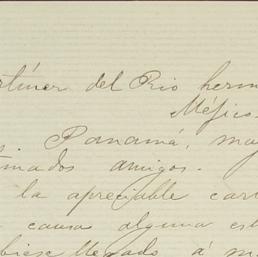 rtínez del Rio herm
Méjico.
s. Panamá, may
timados amigos.
la apreciable cart
causa alguna est
biese llegado á m